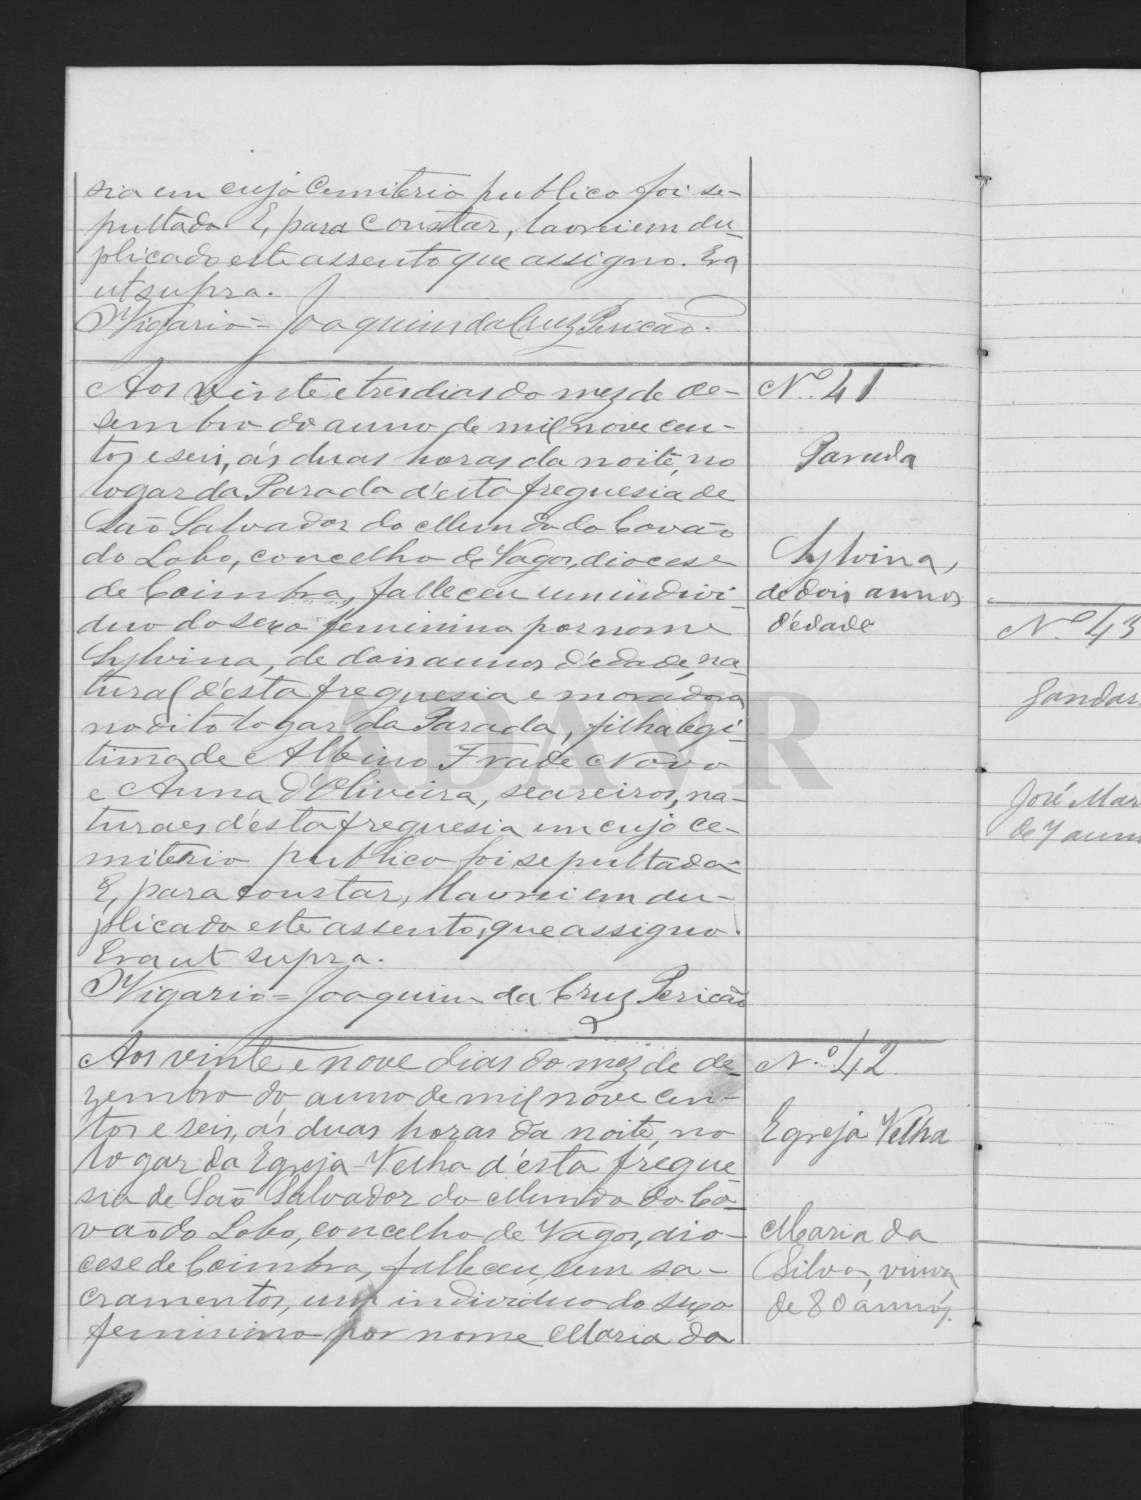 sia em cujo Cemiterio publico foi se-
pultado E, para constar, lavrei em du-
plicado este assento que assigno. Era
ut supra.
O Vigario = Joaquim da Cruz Pericão.
Aos vinte e tres dias do mez de de-
sembro do anno de mil nove cen-
tos e seis, ás duas horas da noite, no
logar da Parada d'esta freguesia de
São Salvador do Mundo do Covão
do Lobo, concelho de Vagos, diocese
de Coimbra, falleceu um indivi-
duo do sexo feminino por nome
Sylvina, de dois annos d'edade, na-
tural d'esta freguesia e moradora
no dito logar da Parada, filha legi-
tima de Albino Frade Novo
e Anna d'Oliveira, seareiros, na-
turaes d'esta freguesia em cujo ce-
miterio publico foi sepultada-
E, para constar, lavrei em du-
plicado este assento, que assigno.
Era ut supra.
O Vigario = Joaquim da Cruz Pericão
Aos vinte e nove dias do mez de de-
zembro do anno de mil nove cen-
tos e seis, ás duas horas da noite, no
logar da Egreja-Velha d'esta fregue-
sia de São Salvador do Mundo do Co-
vão do Lobo, concelho de Vagos, dio-
cese de Coimbra, falleceu, sem sa-
cramentos, um individuo do sexo
feminino por nome Maria da
Nº 41
Parada
Sylvina,
de dois annos
d'edade
N.º 42
Egreja Velha
Maria da
Silva, viuva
de 80 annos.
Nº 43
Gandar
José Mar
de 7 ann
ADAVR